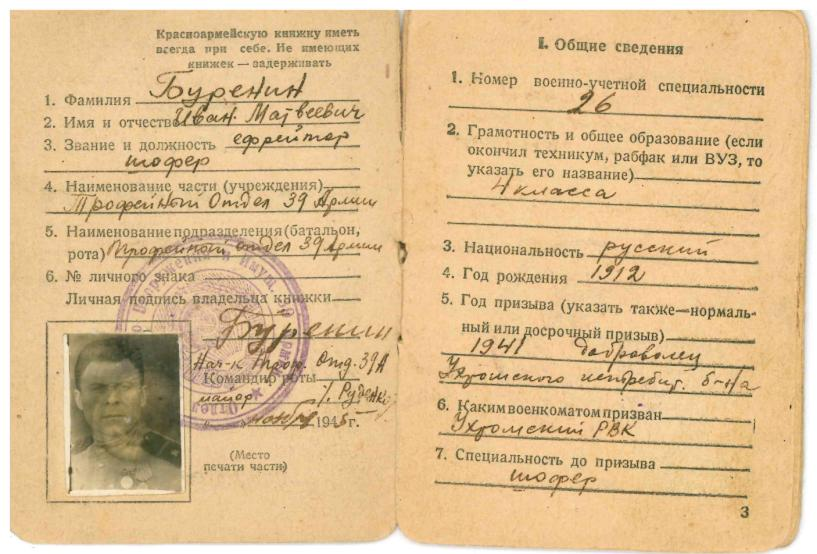 Красноармейскую книжку иметь
всегда при себе. Не имеющих
книжек — задерживать
1. Фамилия Буренин
2. Имя и отчество Иван Матвеевич
3. Звание и должность ефрейтор
шофер
4. Наименование части (учреждения)
Трофейный Отдел 39 Армии
5. Наименование подразделения (батальон,
рота) Трофейный отдел 39 Армии
6. № личного знака
Личная подпись владельца книжки
Буренин
Нач-к Троф. Отд. 39А
Командир роты
майор /. Руденко
ноября 1945 г.
(Место
печати части)
I. Общие сведения
1. Номер военно-учетной специальности
26
2. Грамотность и общее образование (если
окончил техникум, рабфак или ВУЗ, то
указать его название)
4 класса
3. Национальность русский
4. Год рождения 1912
5. Год призыва (указать также—нормаль-
ный или досрочный призыв)
1941 доброволец
Ухтомского истребит. б-на
6. Каким военкоматом призван
Ухтомский РВК
7. Специальность до призыва
шофер
3